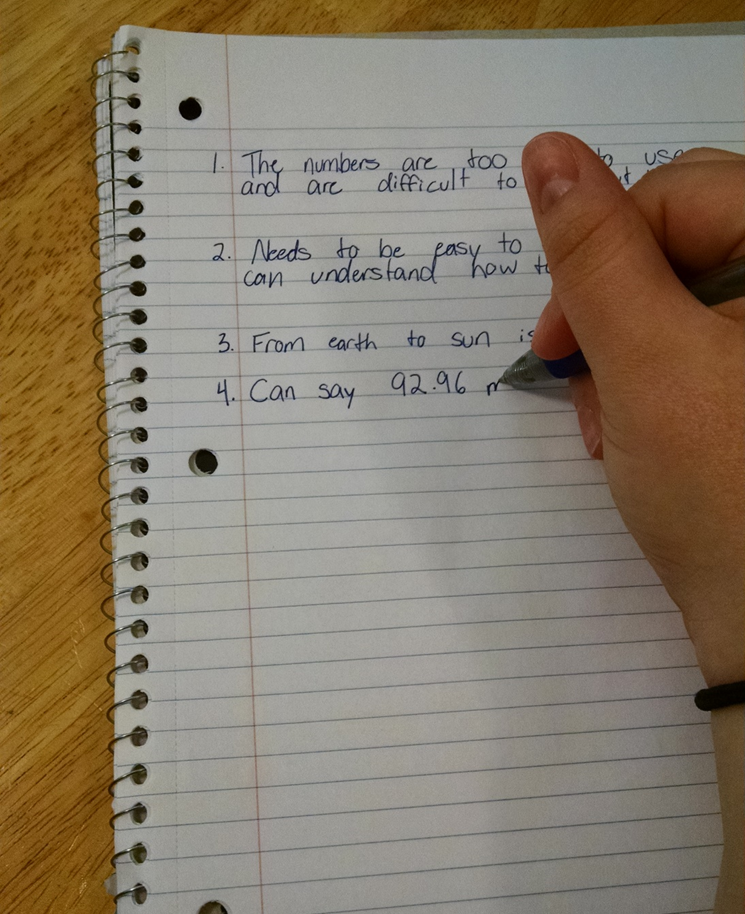 1. The numbers are too to use
and are difficult to
2. Needs to be easy to
can understand how
3. From earth to sun is
4. Can say 92.96 m